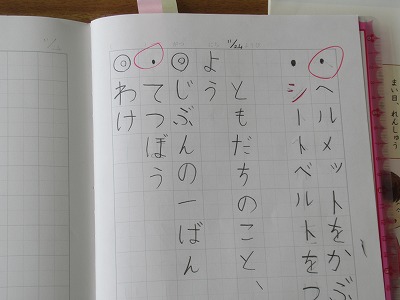 まい日、れんしゅう
11/24
・ヘルメットをかぶ
・シートベルトをつ
ともだちのこと、
よう
◎じぶんの一ばん
・てつぼう
◎わけ